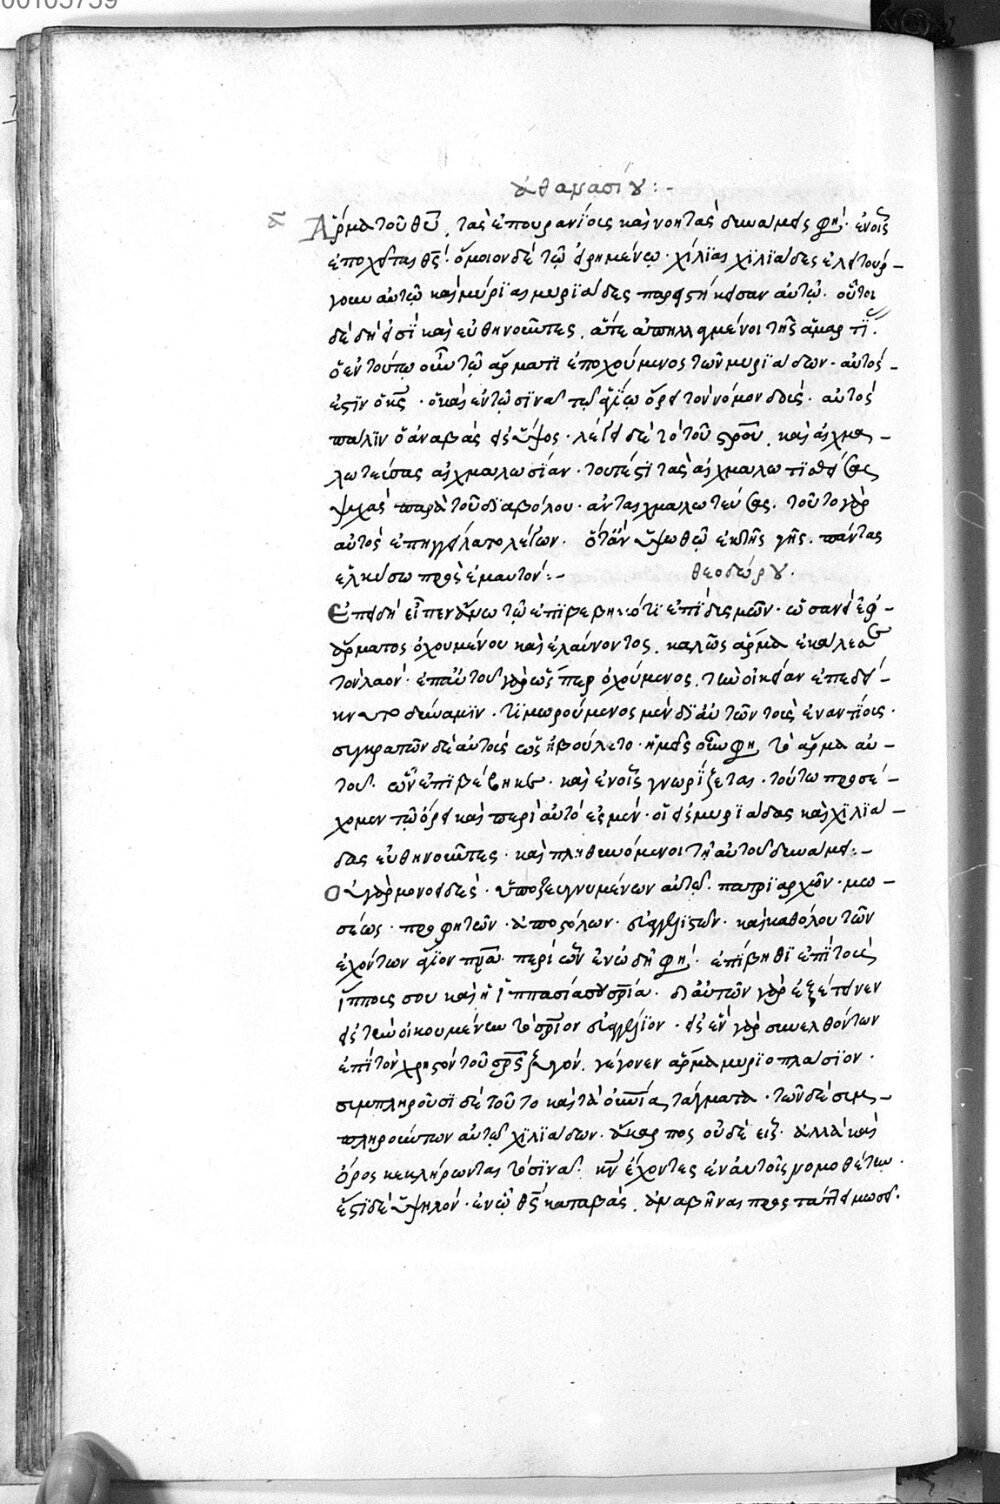 00105759
ἀθανασίου :-
α Ἅρμα τοῦ θυ, τὰς ἐπουρανίοις καὶ νοητὰς δυνάμεις φη. ἐν οἷς
ἐποχεῖται θς. ὅμοιον δὲ τῷ εἰρημένῳ. χίλιαι χιλιάδες ἐλειτούρ-
γουν αὐτῷ καὶ μύριαι μυριάδες παρειστήκεισαν αὐτῷ. οὗτοι
δὲ δὴ εἰσὶ καὶ εὐθηνοῦντες, ἅτε ἀπηλλαγμένοι τῆς ἁμαρτί
ὁ ἐν τούτῳ οὖν τῷ ἅρματι ἐποχούμενος τῶν μυριάδων. αὐτός
ἐστιν ὁ κς. ὁ καὶ ἐν τῷ σινᾶ τῷ ἁγίῳ ὄρει τὸν νόμον δούς. αὐτὸς
πάλιν ὁ ἀναβὰς εἰς ὕψος. λέγει δὲ τὸ τοῦ σρου, καὶ αἰχμα-
λωτεύσας αἰχμαλωσίαν. τουτέστι τὰς αἰχμαλωτισθείσας
ψυχὰς παρὰ τοῦ διαβόλου. ἀνταιχμαλωτεύσας. τοῦτο γὰρ
αὐτὸς ἐπηγγείλατο λέγων. ὅταν ὑψωθῶ ἐκ τῆς γῆς. πάντας
ἑλκύσω πρὸς ἐμαυτόν :-
θεοδώρου.
Ἐπειδὴ εἶπεν ἄνω τῷ ἐπιβεβηκότι ἐπὶ δυσμῶν. ὡσανεὶ ἐφ'-
ἅρματος ὀχουμένου καὶ ἐλαύνοντος, καλῶς ἅρμα ἐκάλεσε
τὸν λαόν. ἐπ' αὐτοῦ γὰρ ὥσπερ ὀχούμενος, τὴν οἰκείαν ἐπεδεί-
κνυτο δύναμιν. τιμωρούμενος μὲν δι' αὐτῶν τοὺς ἐναντίους.
αὐτοῖς ὡς ἠβούλετο. ἡμεῖς οὖν φη τὸ ἅρμα αὐ-
τοῦ. ὧν ἐπιβέβηκε. καὶ ἐν οἷς γνωρίζεται. τούτω προσέ-
χομεν τῷ ὄρει καὶ περὶ αὐτό ἐσμεν. οἱ εἰς μυριάδας καὶ χιλιά-
δας εὐθηνοῦντες. καὶ πληθυνόμενοι τῇ αὐτοῦ δυνάμει :-
Οὐ γὰρ μονοειδές. ὑποζευγνυμένων αὐτῷ. πατριαρχῶν. μω-
σέως. προφητῶν. ἀποστόλων. εὐαγγελιστῶν. καὶ καθόλου τῶν
ἐχόντων ἅγιον πνα. περὶ ὧν ἐν ᾠδῇ φη. ἐπίβηθι ἐπὶ τοὺς
ἵππους σου καὶ ἡ ἱππασία σου σρία. δι' αὐτῶν γὰρ ἐξέτεινεν
εἰς τὴν οἰκουμένην τὸ σριον εὐαγγέλιον. εἰς ἓν γὰρ συνελθόντων
ἐπὶ τὸν χρηστὸν τοῦ σρς ζυγόν, γέγονεν ἅρμα μυριοπλάσιον.
συμπληροῦσι δὲ τοῦτο καὶ τὰ οὐνια τάγματα. τῶν δὲ συμ-
πληρούντων αὐτῷ χιλιάδων. ἄκαρπος οὐδὲ εἷς. ἀλλὰ καὶ
ὄρος κεκλήρωνται τὸ σινᾶ. κν ἔχοντες ἐν αὐτοῖς νομοθέτην.
ἔστι δὲ ὑψηλόν. ἐν ᾧ θς καταβὰς, ἀναβῆναι προστάττει μωσῆ.